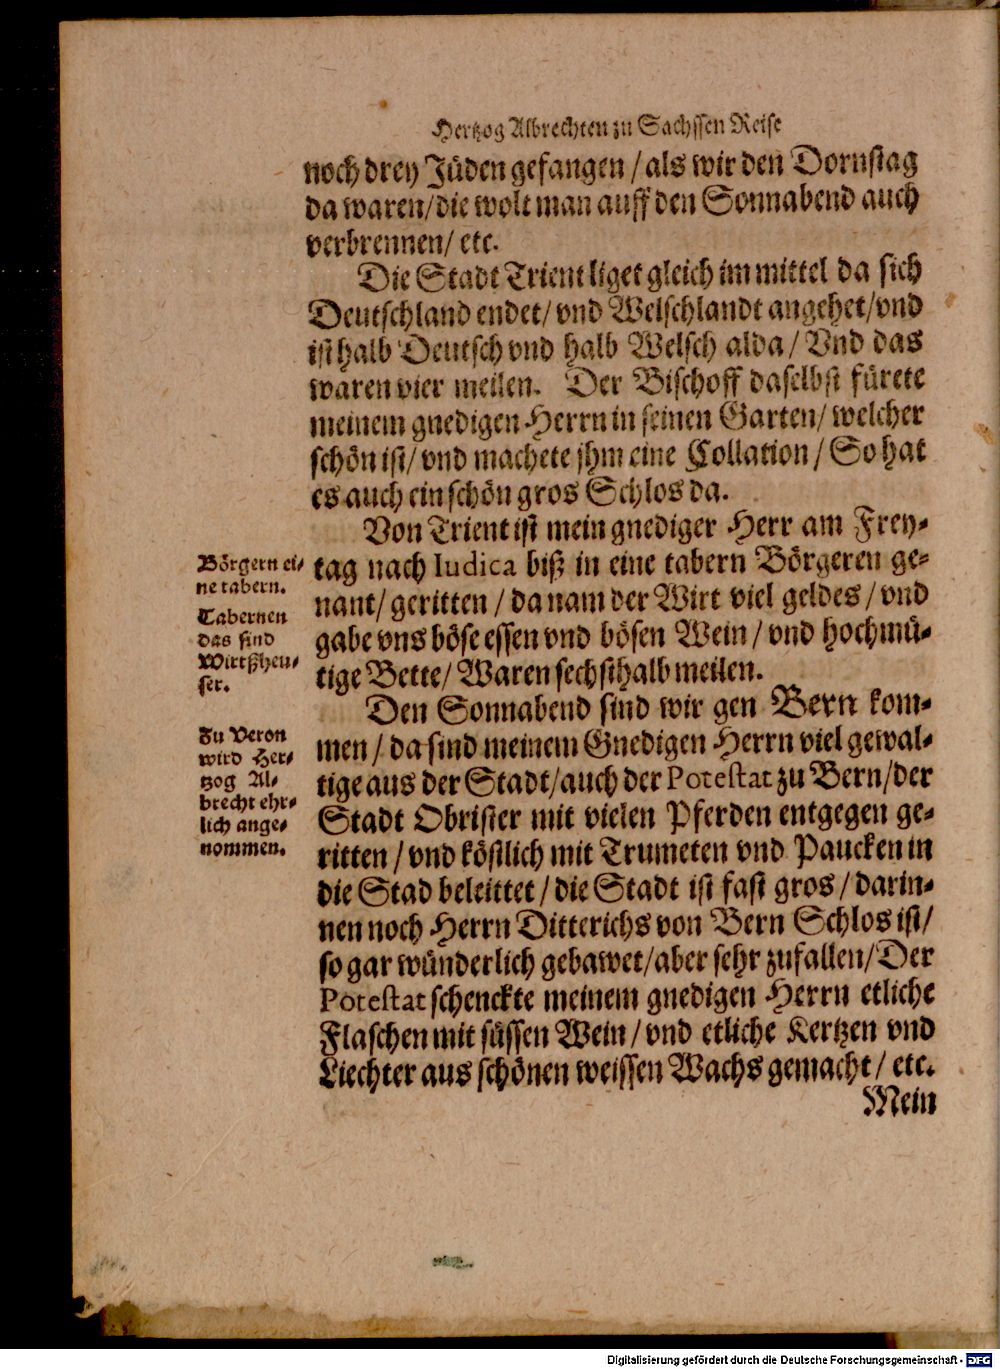 Hertzog Albrechten zu Sachssen Reise
noch drey Jüden gefangen / als wir den Dornstag
da waren/die wolt man auff den Sonnabend auch
verbrennen/ etc.
Die Stadt Trient liget gleich im mittel da sich
Deutschland endet/ vnd Welschlandt angehet/vnd
ist halb Deutsch vnd halb Welsch alda / Vnd das
waren vier meilen. Der Bischoff daselbst fürete
meinem gnedigen Herrn in seinen Garten/ welcher
schön ist/ vnd machete jhm eine Collation / So hat
es auch ein schön gros Schlos da.
Von Trient ist mein gnediger Herr am Frey-
tag nach Iudica biß in eine tabern Börgeren ge-
nant/ geritten / da nam der Wirt viel geldes / vnd
gabe vns böse essen vnd bösen Wein / vnd hochmü-
tige Bette/ Waren sechsthalb meilen.
Börgern ei-
ne tabern.
Tabernen
das sind
Wirtßheu-
ser.
Den Sonnabend sind wir gen Bern kom-
men / da sind meinem Gnedigen Herrn viel gewal-
tige aus der Stadt/auch der Potestat zu Bern/der
Stadt Obrister mit vielen Pferden entgegen ge-
ritten / vnd köstlich mit Trumeten vnd Paucken in
die Stad beleittet / die Stadt ist fast gros / darin-
nen noch Herrn Ditterichs von Bern Schlos ist/
so gar wünderlich gebawet/aber sehr zufallen/Der
Potestat schenckte meinem gnedigen Herrn etliche
Flaschen mit süssen Wein / vnd etliche Kertzen vnd
Liechter aus schönen weissen Wachs gemacht / etc.
Zu Veron
wird Her-
tzog Al-
brecht ehr-
lich ange-
nommen.
Mein
Digitalisierung gefördert durch die Deutsche Forschungsgemeinschaft - DFG